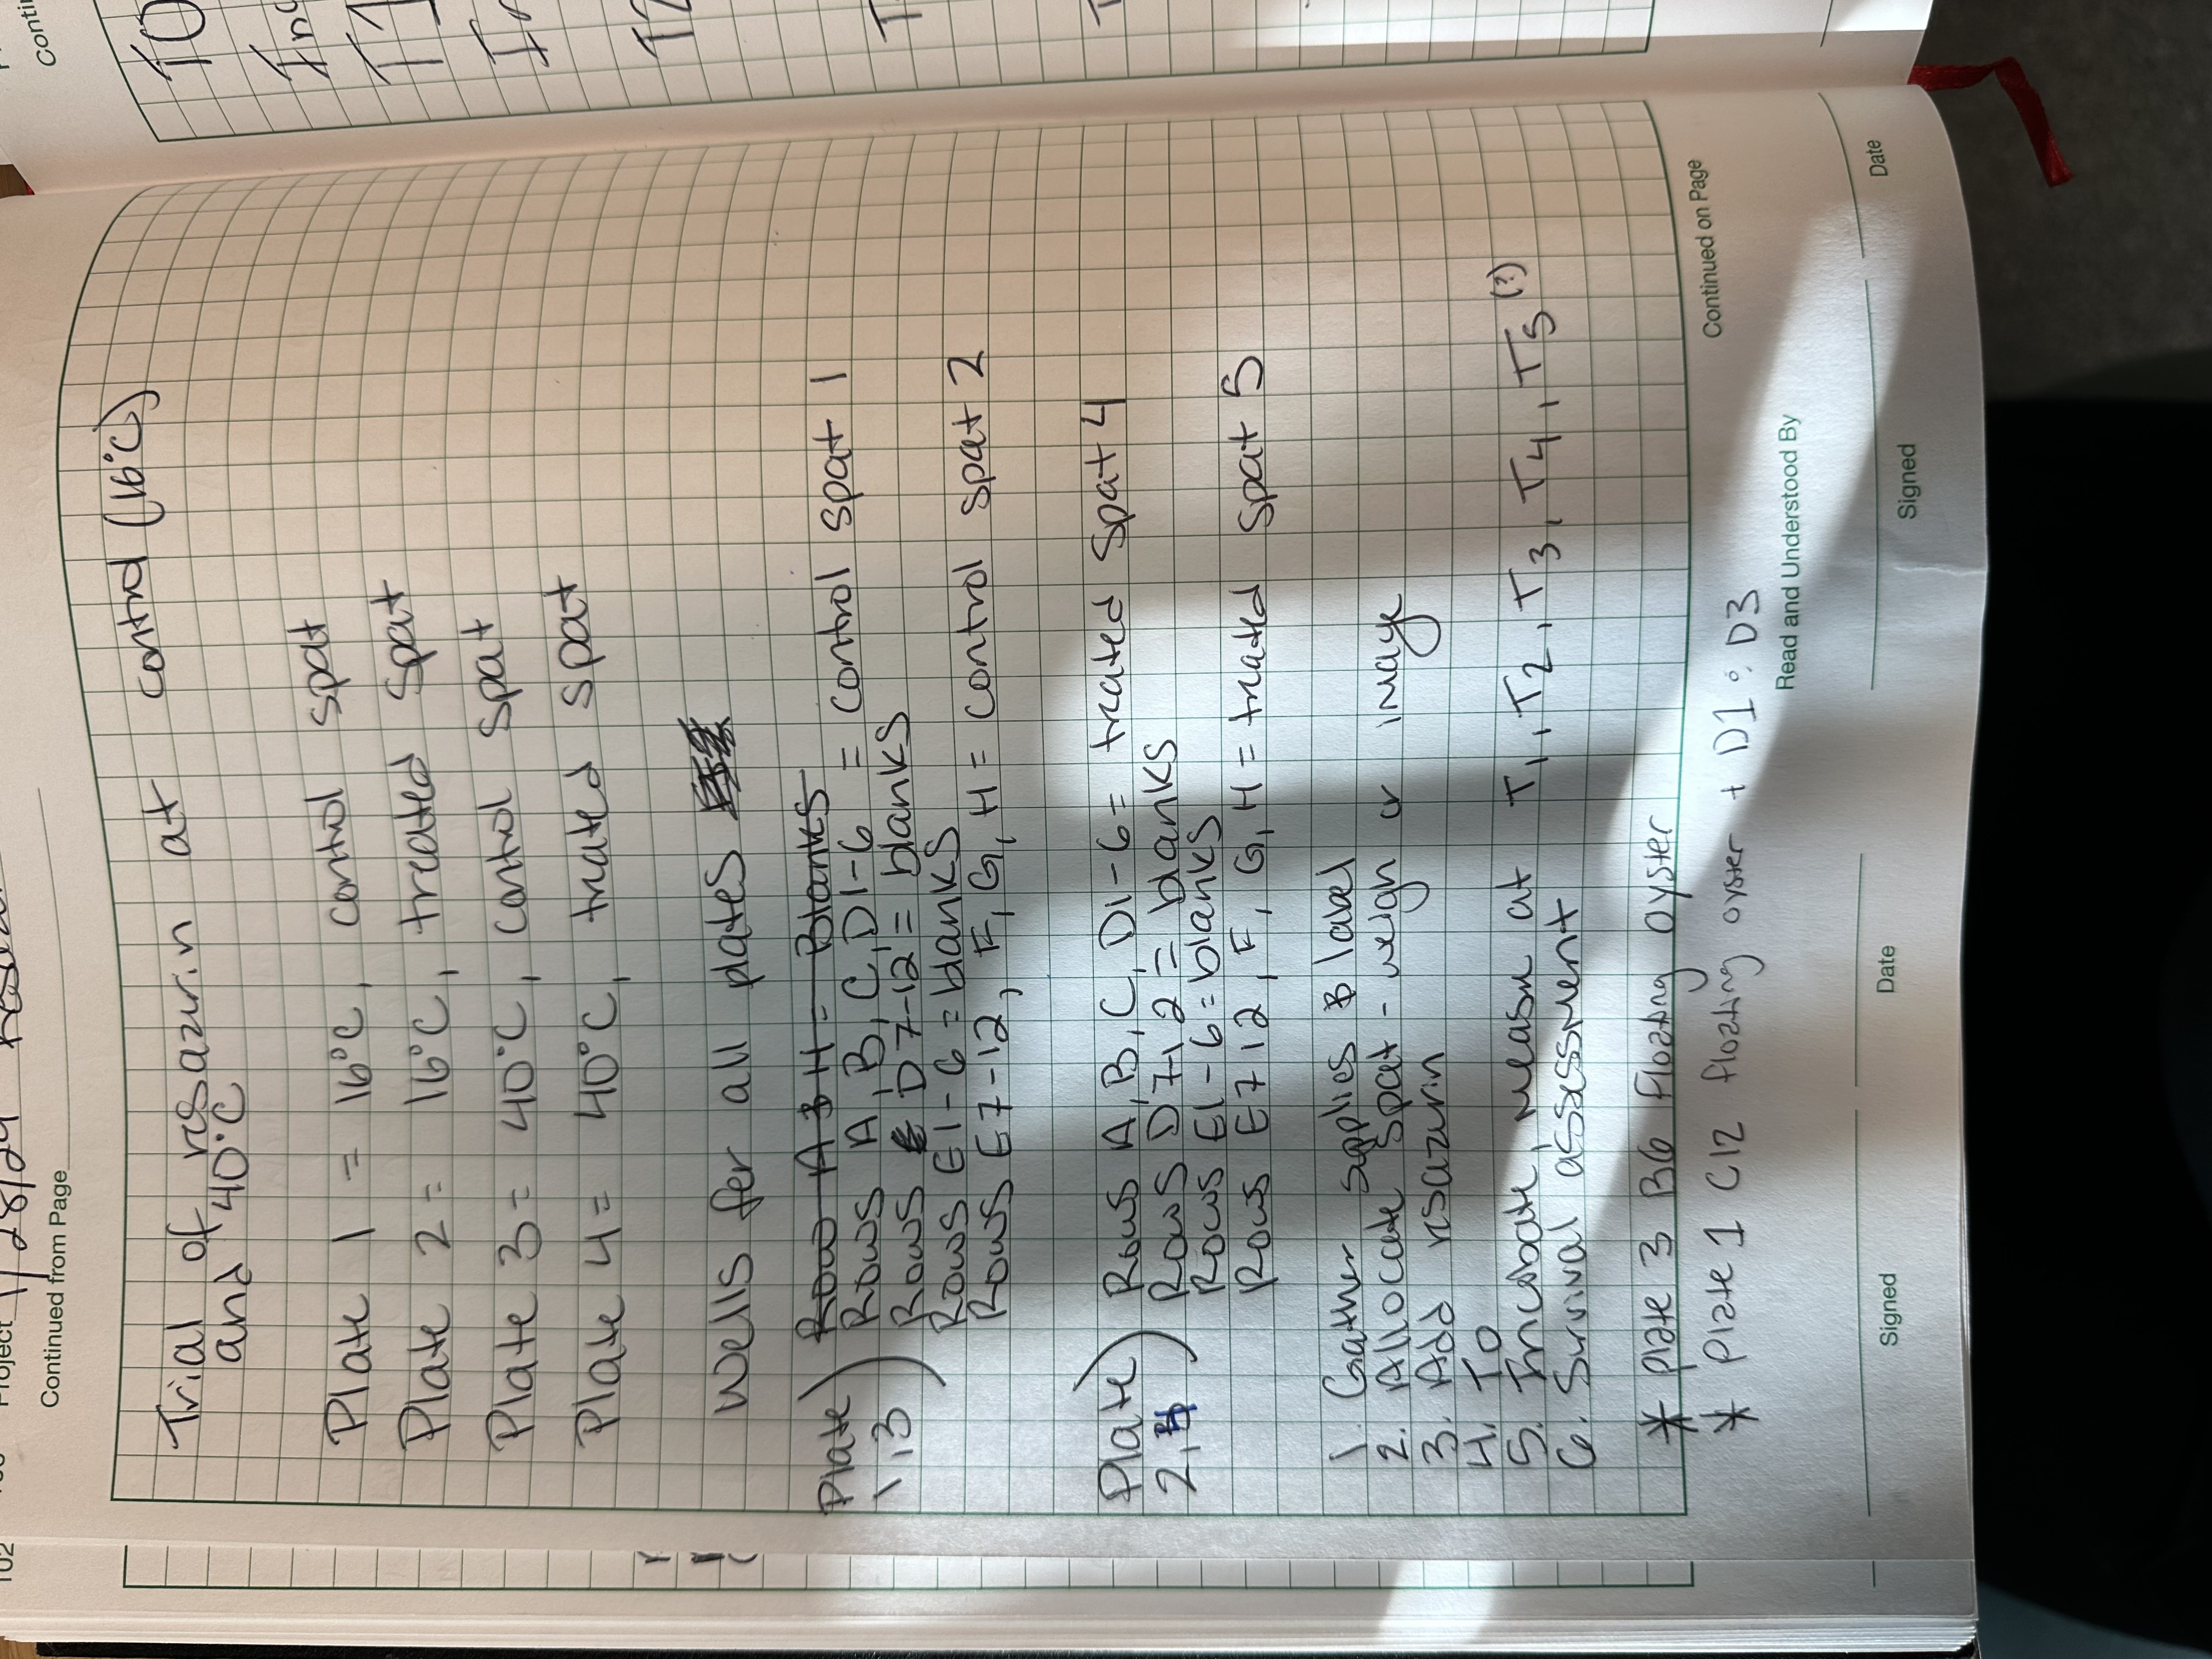 102
Project 1/28/24
Continued from Page
Trial of resazurin at control (16°C)
and 40°C
Plate 1 = 16°C, control spat
Plate 2 = 16°C, treated spat
Plate 3 = 40°C, control spat
Plate 4 = 40°C, treated spat
Wells for all plates
Plate 1,3)
Row A & H = Blanks
Rows A, B, C, D1-6 = control spat 1
Rows D7-12 = blanks
Rows E1-6 = blanks
Rows E7-12, F, G, H = control spat 2
Plate 2,4)
Rows A, B, C, D1-6 = treated spat 4
Rows D7-12 = blanks
Rows E1-6 = blanks
Rows E7 12, F, G, H = treated spat 5
1. Gather supplies & label
2. Allocate spat - weigh or image
3. Add resazurin
4. T0
5. Incubate, measure at T1, T2, T3, T4, T5 (?)
6. Survival assessment
* plate 3 B6 floating oyster
* Plate 1 C12 floating oyster + D1 & D3
Continued on Page
Read and Understood By
Signed
Date
Signed
Date
T0
T1
T2